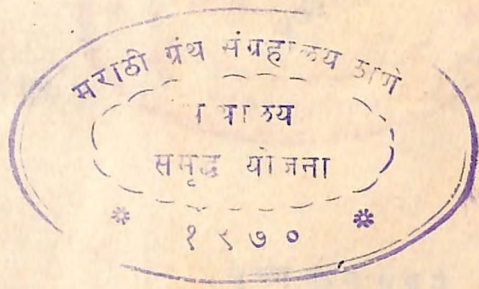 मराठी ग्रंथ संग्रहालय ठाणे
समृद्ध योजना
* १९७० *